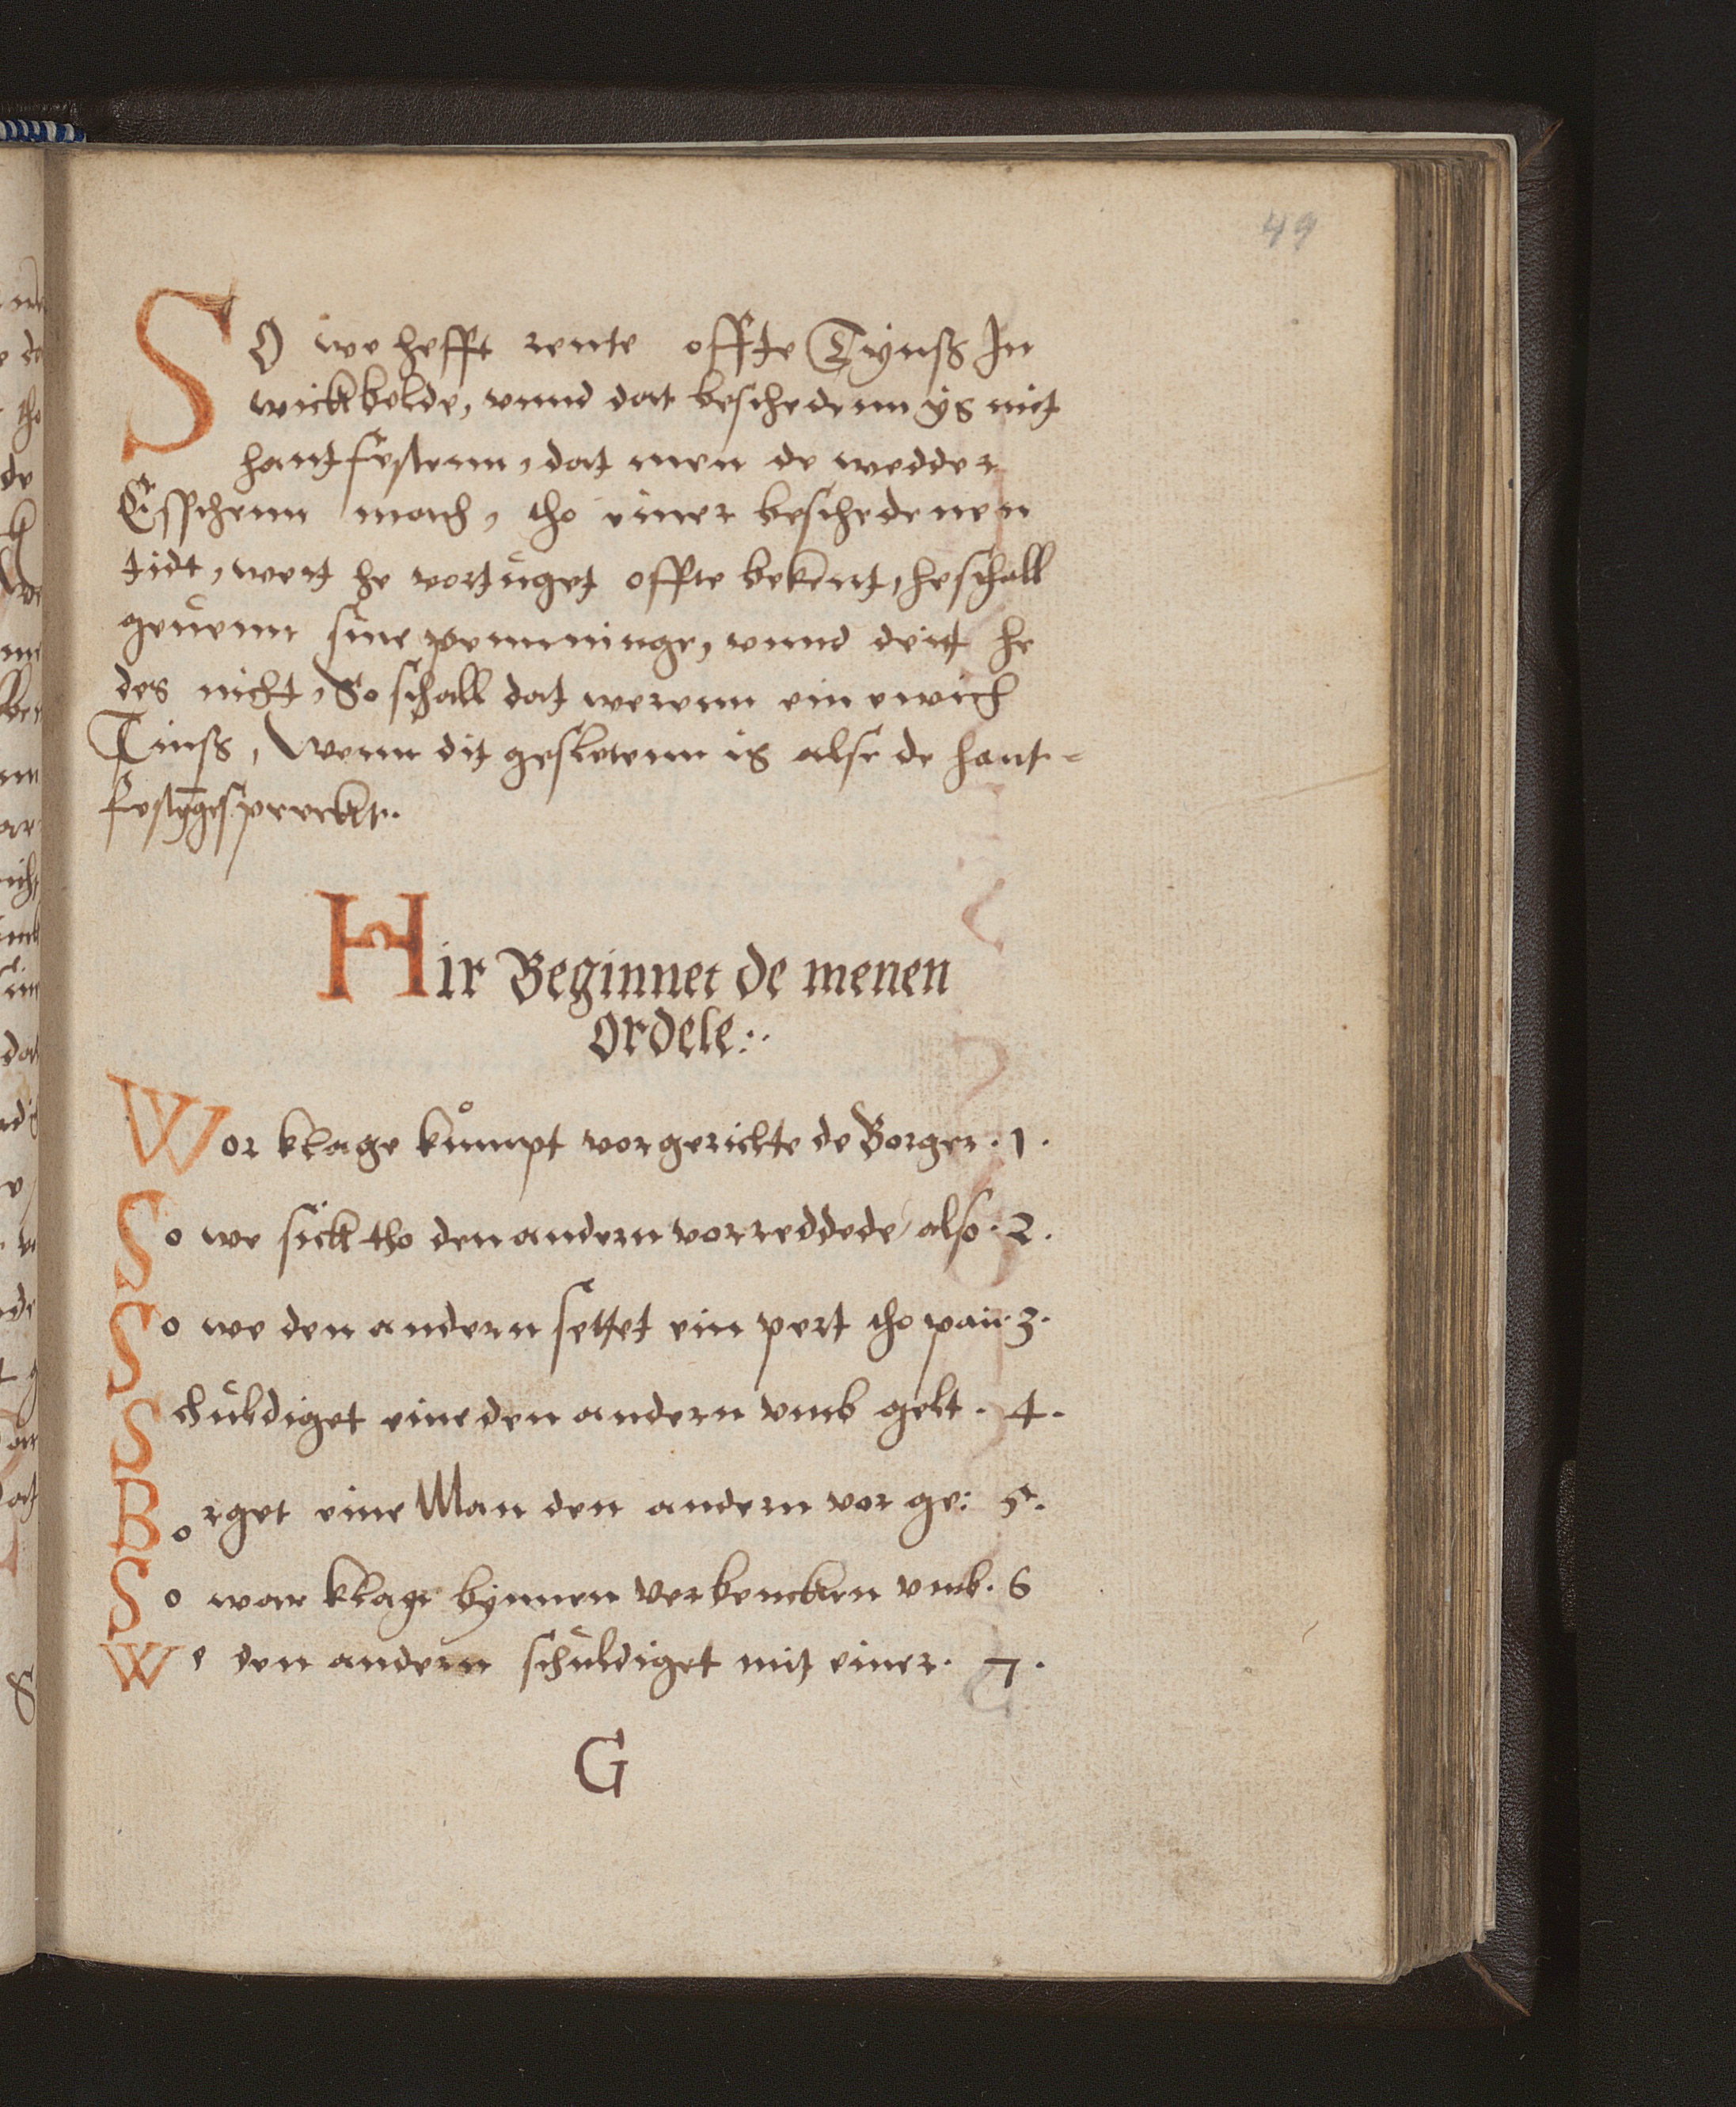 49
SO we hefft rente offte Tÿnß In
wickbelde, vnnd dat beschedenn ÿs mit
hantfestenn, dat men de wedder
Esschenn mach, tho einer beschedenen
tidt, wert he vortüget offte bekent, he schall
geuenn sine penninge, vnnd deit he
des nicht, So schall dat werenn ein ewich
Tinß, Wenn dit gesletenn is alse de hant-
feste spreckt.
Hir Beginnet de menen
ordele:.
Wor klage kůmpt vor gerichte de Borger. 1.
So we sick tho den andern vorreddede also. 2.
So we den andern settet ein pert tho pan. 3.
Schuldiget eine den andern vmb gelt. 4.
Borget eine Man den andern vor ge: 5.
So war klage bÿnnen Verbencken vmb. 6
We den andern schuldiget mit einer. 7.
G